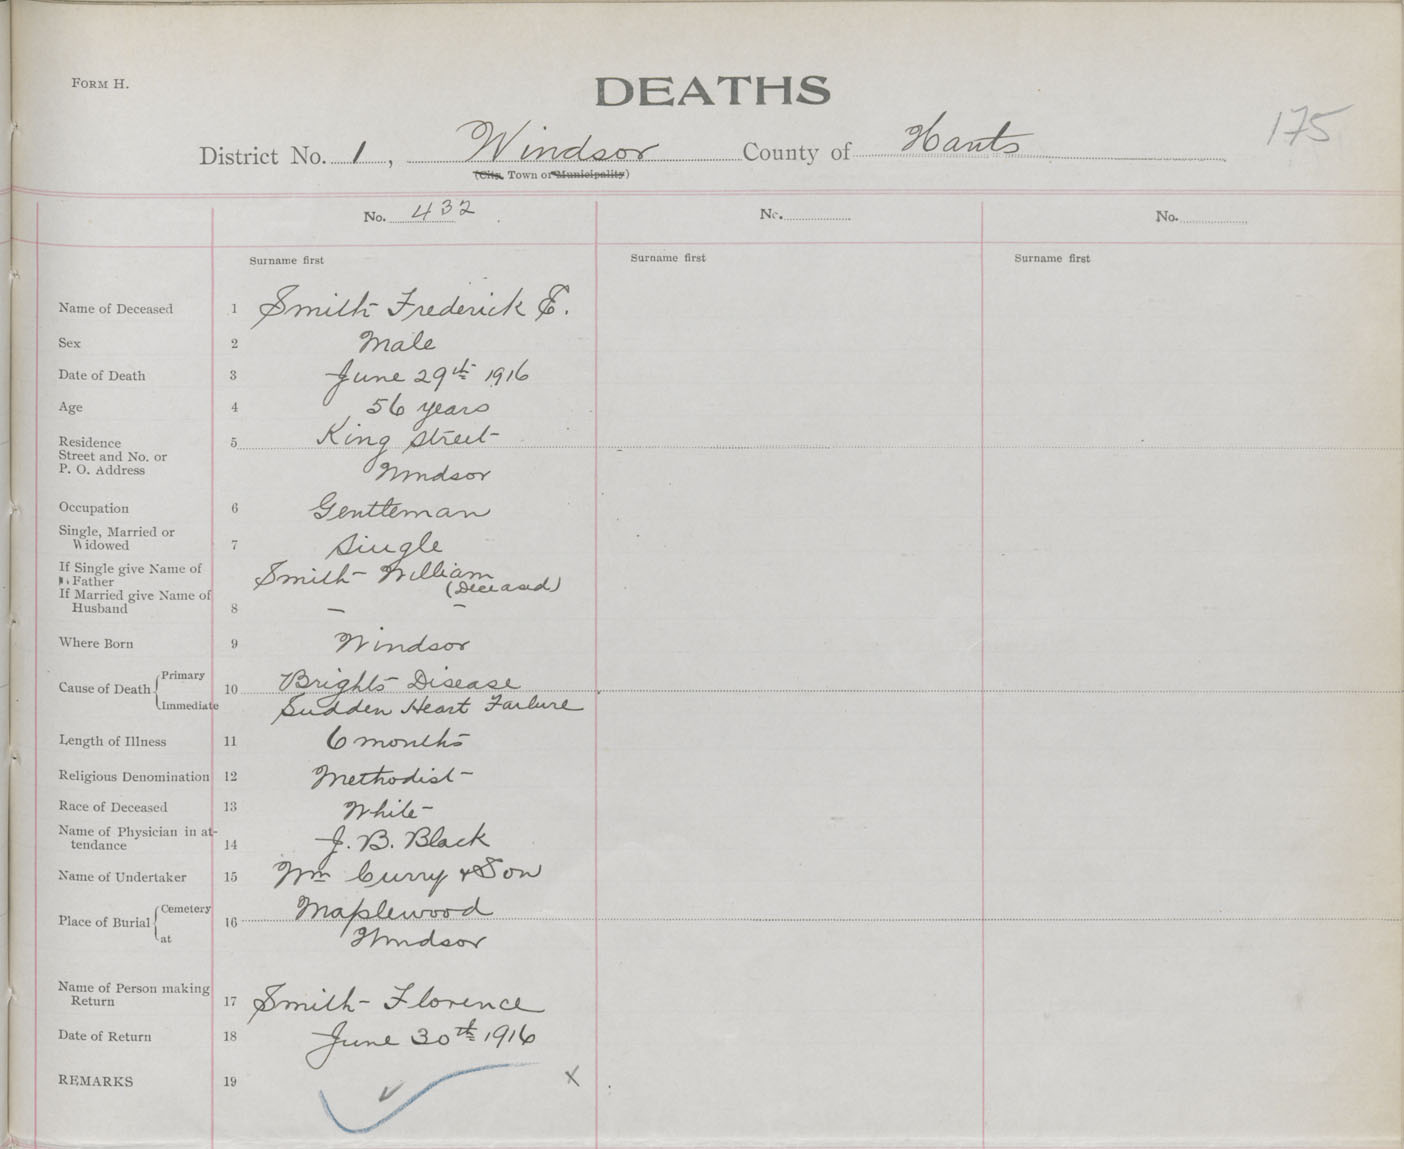 FORM H.
DEATHS
175
District No. 1, Windsor County of Hants
(City, Town or Municipality)
No. 432 No. No.
Surname first Surname first Surname first
Name of Deceased 1 Smith Frederick E.
Sex 2 Male
Date of Death 3 June 29th 1916
Age 4 56 years
Residence 5 King Street
Street and No. or
P. O. Address Windsor
Occupation 6 Gentleman
Single, Married or
Widowed 7 Single
If Single give Name of
Father Smith William
(Deceased)
If Married give Name of
Husband 8 — —
Where Born 9 Windsor
Cause of Death Primary 10 Brights Disease
Immediate Sudden Heart Failure
Length of Illness 11 6 months
Religious Denomination 12 Methodist
Race of Deceased 13 White
Name of Physician in at-
tendance 14 J. B. Black
Name of Undertaker 15 Wm Curry & Son
Place of Burial Cemetery 16 Maplewood
at Windsor
Name of Person making
Return 17 Smith Florence
Date of Return 18 June 30th 1916
REMARKS 19 x